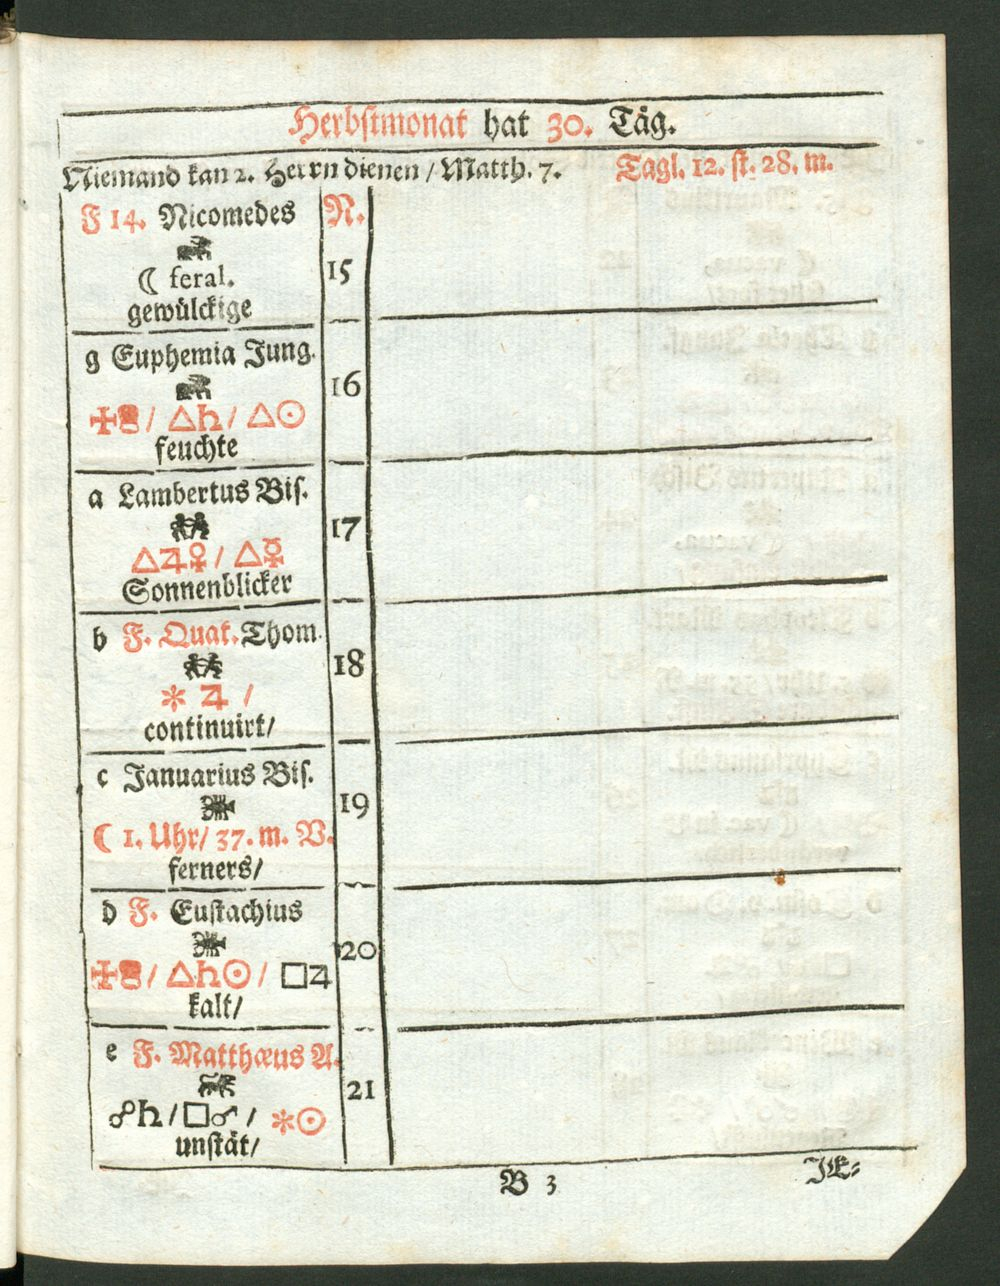 Herbstmonat hat 30. Täg.
Niemand kan 2. Herrn dienen / Matth. 7. Tagl. 12. st. 28. m.
F 14. Nicomedes N.
☾ feral. 15
gewülckige
g Euphemia Jung.
16
✠ / △♄ / △☉
feuchte
a Lambertus Bis.
17
△♃♀ / △☿
Sonnenblicker
b F. Quat. Thom.
18
✻ ♃ /
continuirt /
c Januarius Bis.
19
☾ 1. Uhr / 37. m. V.
ferners /
d F. Eustachius
20
✠ / △♄☉ / □♃
kalt /
e F. Matthæus A.
21
☍♄ / □♂ / ✻☉
unstät /
B 3 JE⸗